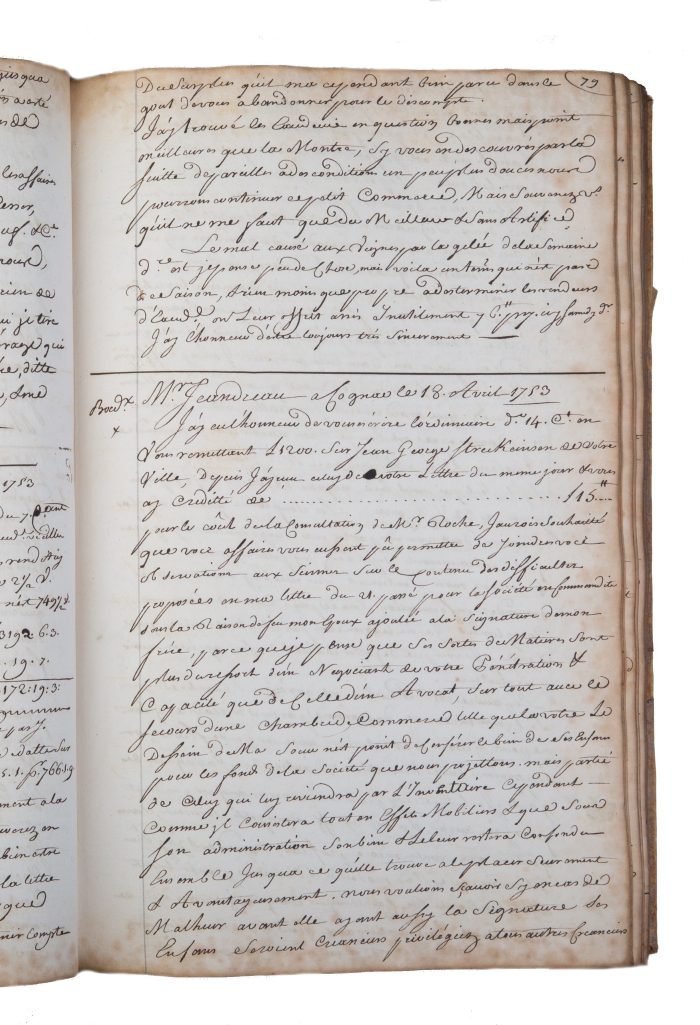 jusqua
79
Du Surplus qu'il ma cependant bien paru dans le
gout de vous abandonner pour le discompte.
J'ay trouvé les Eaudevie en question bonnes mais point
meilleures que la Montre, sy vous en descouvrés par la
suitte de pareilles a des conditions un peu plus douces nous
pourrons continuer ce petit Commerce, Mais Souvenez vs.
qu'il ne me faut que du Meilleur & Sans Artifice
Le mal causé aux Vignes par la gelée de la Semaine
d.re est je pense peu de Chose, mais voila un tems qui n'est pas
de Saison, & rien moins que propre a determiner les vendeurs
Leur offert Inutilement
J'ay l'honneur d'etre toujours trés Sincerement
Bord.x
x
Mr. Jeandreau a Cognac le 18. Avril 1753
J'ay eu l'honneur de vous écrire l'ordinaire d.r 14. Ct. en
Vous remettant £1200. Sur Jean George Streckeinsen de Votre
Ville, Depuis J'ay eu celuy de votre Lettre du meme jour & vous
ay Creditté de ........ £15"..
pour le coût de la Consultation de Mr. Roche, Jaurois Souhaitté
que vos affaires vous eussent pû permettre de Joindre vos
observations aux Siennes Sur le Contenu des difficultés
proposées en ma lettre du 21. passé pour la Société en Commandite
sous la Raison de feu mon Epoux ajoutée a la Signature de mon
frere, parce que je pense que Ses Sortes de Matieres Sont
plus du report d'un Negociant de votre Pénétration &
Capacité que de Celle d'un Avocat, Sur tout avec le
secours d'une Chambre de Commerce telle que la votre Le
Dessein de Ma Soeur n'ét point de Conférer le bien de Ses Enfans
pour les fonds de la Société que nous projettons. mais partie
de Celuy qui luy reviendra par L'Inventaire Cependant
comme il Consistera tout en Effets Mobiliers & que Sous
Son administration Son bien & Le leur restera Confondu
Ensemble Jusqua ce qu'elle trouve a le placer Seurement
& Avantageusement. nous voulions Sçavoir Sy en cas de
Malheur avant elle ayant aussy la Signature Ses
Enfans Seroient Creanciers privilégiez a tous autres Creanciers
les affaires
1753
Du 7.
3192. 6. 3.
19. 7.
172:19:3:
ment a la
la lettre
que
compte